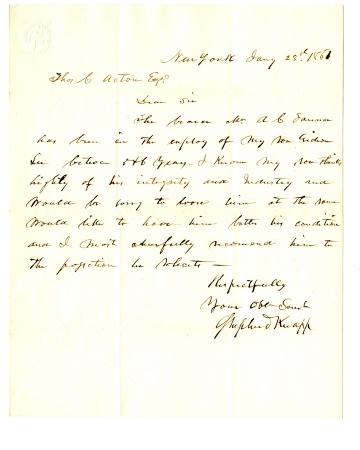 New York Jany 28th 1861
Thos C Acton Esqr
Dear Sir
The bearer Mr A C
has been in the employ of my son Gideon
Lee between 5 & 6 years I know my son thinks
highly of his integrity and Industry and
would be sorry to loose him at the same
would like to have him better his condition
and I most cheerfully recomend him to
the position he solicits
Respectfully
Your Obt Servt
Shepherd Knapp